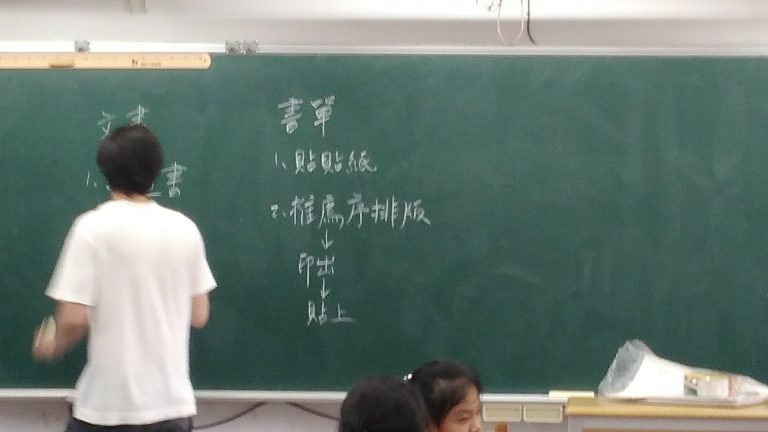 文書
1.
書
書單
1、貼貼紙
2、推薦序排版
↓
印出
↓
貼上